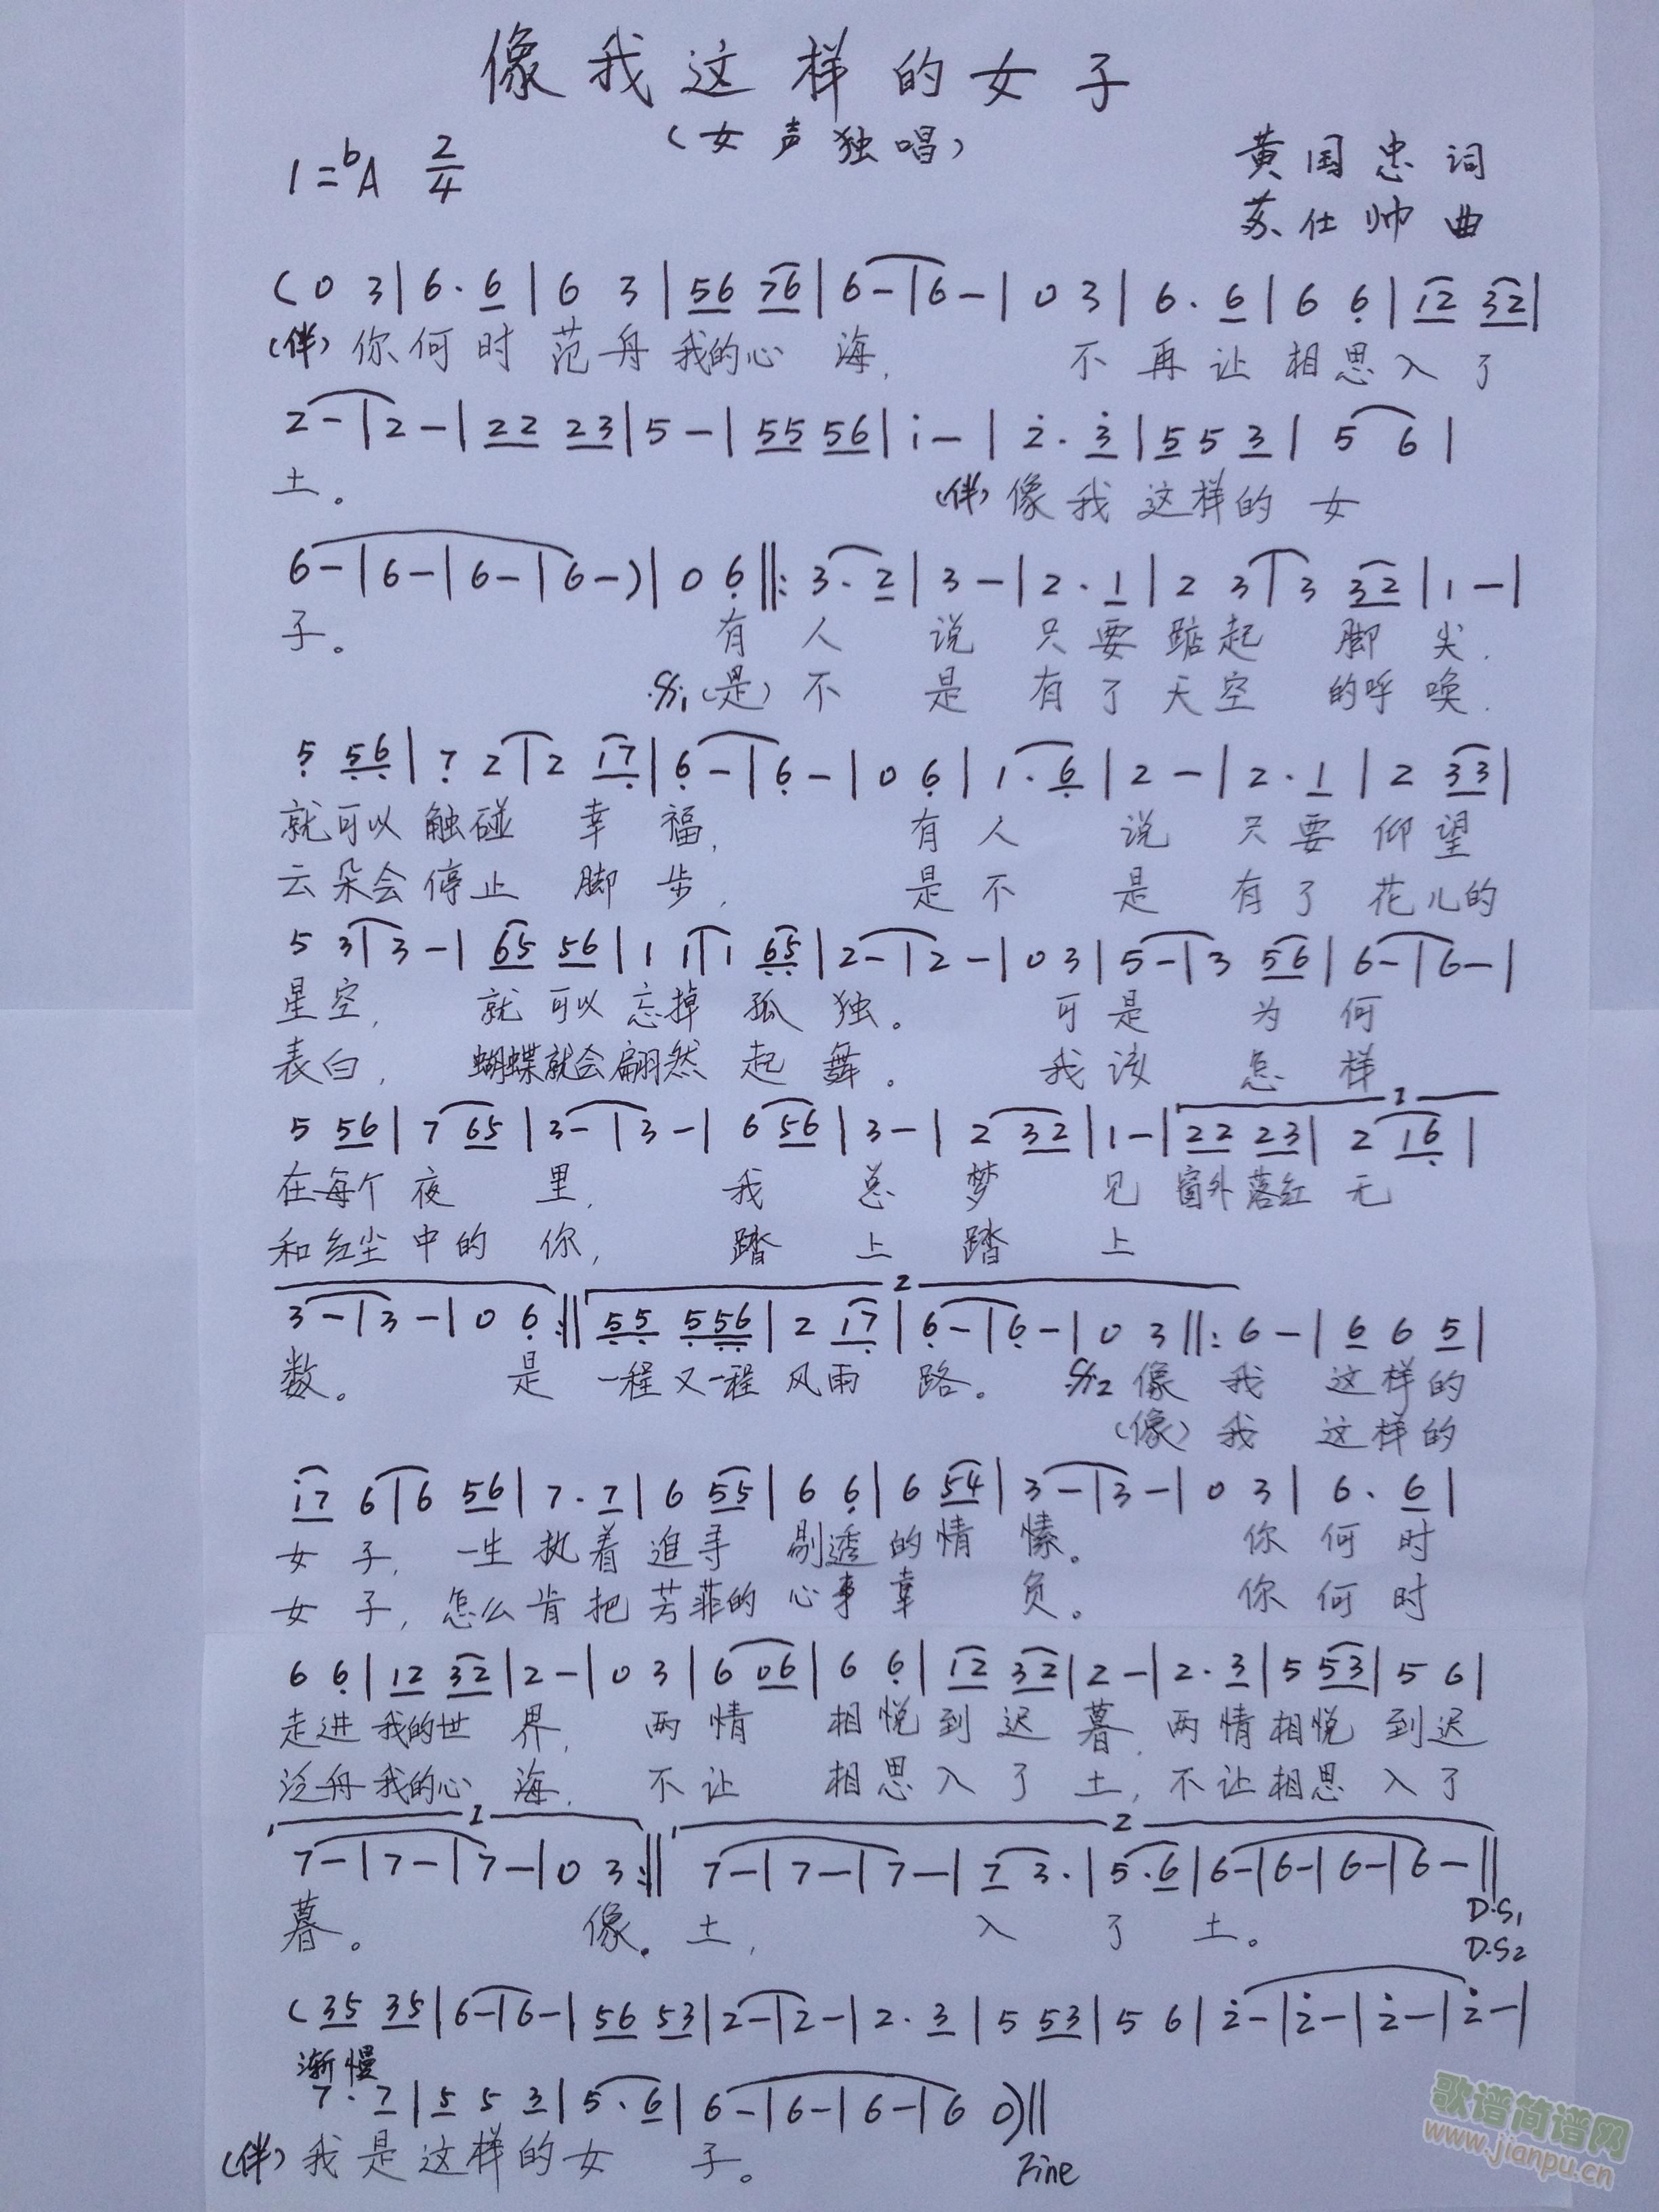 像我这样的女子
（女声独唱）
1=♭A 2/4
黄国忠 词
苏仕帅 曲
( 0 3 | 6 · 6 | 6 3 | 56 76 | 6 - | 6 - | 0 3 | 6 · 6 | 6 6 | 12 32 |
(伴) 你何时范舟我的心海, 不再让相思入了
2 - | 2 - | 22 23 | 5 - | 55 56 | i - | 2 · 3 | 5 5 3 | 5 6 |
土。 (伴) 像我这样的女
6 - | 6 - | 6 - | 6 - ) | 0 6 ‖: 3 · 2 | 3 - | 2 · 1 | 2 3 | 3 32 | 1 - |
子。 有人说只要踮起脚尖,
𝄋1 (是) 不是有了天空的呼唤,
5 56 | 7 2 | 2 17 | 6 - | 6 - | 0 6 | 1 · 6 | 2 - | 2 · 1 | 2 33 |
就可以触碰幸福, 有人说只要仰望
云朵会停止脚步, 是不是有了花儿的
5 3 | 3 - | 65 56 | 1 1 | 1 65 | 2 - | 2 - | 0 3 | 5 - | 3 56 | 6 - | 6 - |
星空, 就可以忘掉孤独。 可是为何
表白, 蝴蝶就会翩然起舞。 我该怎样
5 56 | 7 65 | 3 - | 3 - | 6 56 | 3 - | 2 32 | 1 - | 1 22 23 | 2 16 |
在每个夜里, 我总梦见窗外落红无
和红尘中的你, 踏上踏上
3 - | 3 - | 0 6 :‖ 2 55 556 | 2 17 | 6 - | 6 - | 0 3 ‖: 6 - | 6 6 5 |
数。 是一程又一程风雨路。 𝄋2 像我这样的
(像) 我这样的
i7 6 | 6 56 | 7 · 7 | 6 55 | 6 6 | 6 54 | 3 - | 3 - | 0 3 | 6 · 6 |
女子, 一生执着追寻剔透的情愫。 你何时
女子, 怎么肯把芳菲的心事辜负。 你何时
6 6 | 12 32 | 2 - | 0 3 | 6 06 | 6 6 | 12 32 | 2 - | 2 · 3 | 5 53 | 5 6 |
走进我的世界, 两情相悦到迟暮, 两情相悦到迟
泛舟我的心海, 不让相思入了土, 不让相思入了
1 7 - | 7 - | 7 - | 0 3 :‖ 2 7 - | 7 - | 7 - | 7 3 · | 5 · 6 | 6 - | 6 - | 6 - | 6 - ‖
暮。 像。土, 入了土。 D.S1
D.S2
( 35 35 | 6 - | 6 - | 56 53 | 2 - | 2 - | 2 · 3 | 5 53 | 5 6 | 2 - | 2 - | 2 - | 2 - |
渐慢
7 · 7 | 5 5 3 | 5 · 6 | 6 - | 6 - | 6 - | 6 0 ) ‖
(伴) 我是这样的女子。 Fine
歌谱简谱网
www.jianpu.cn